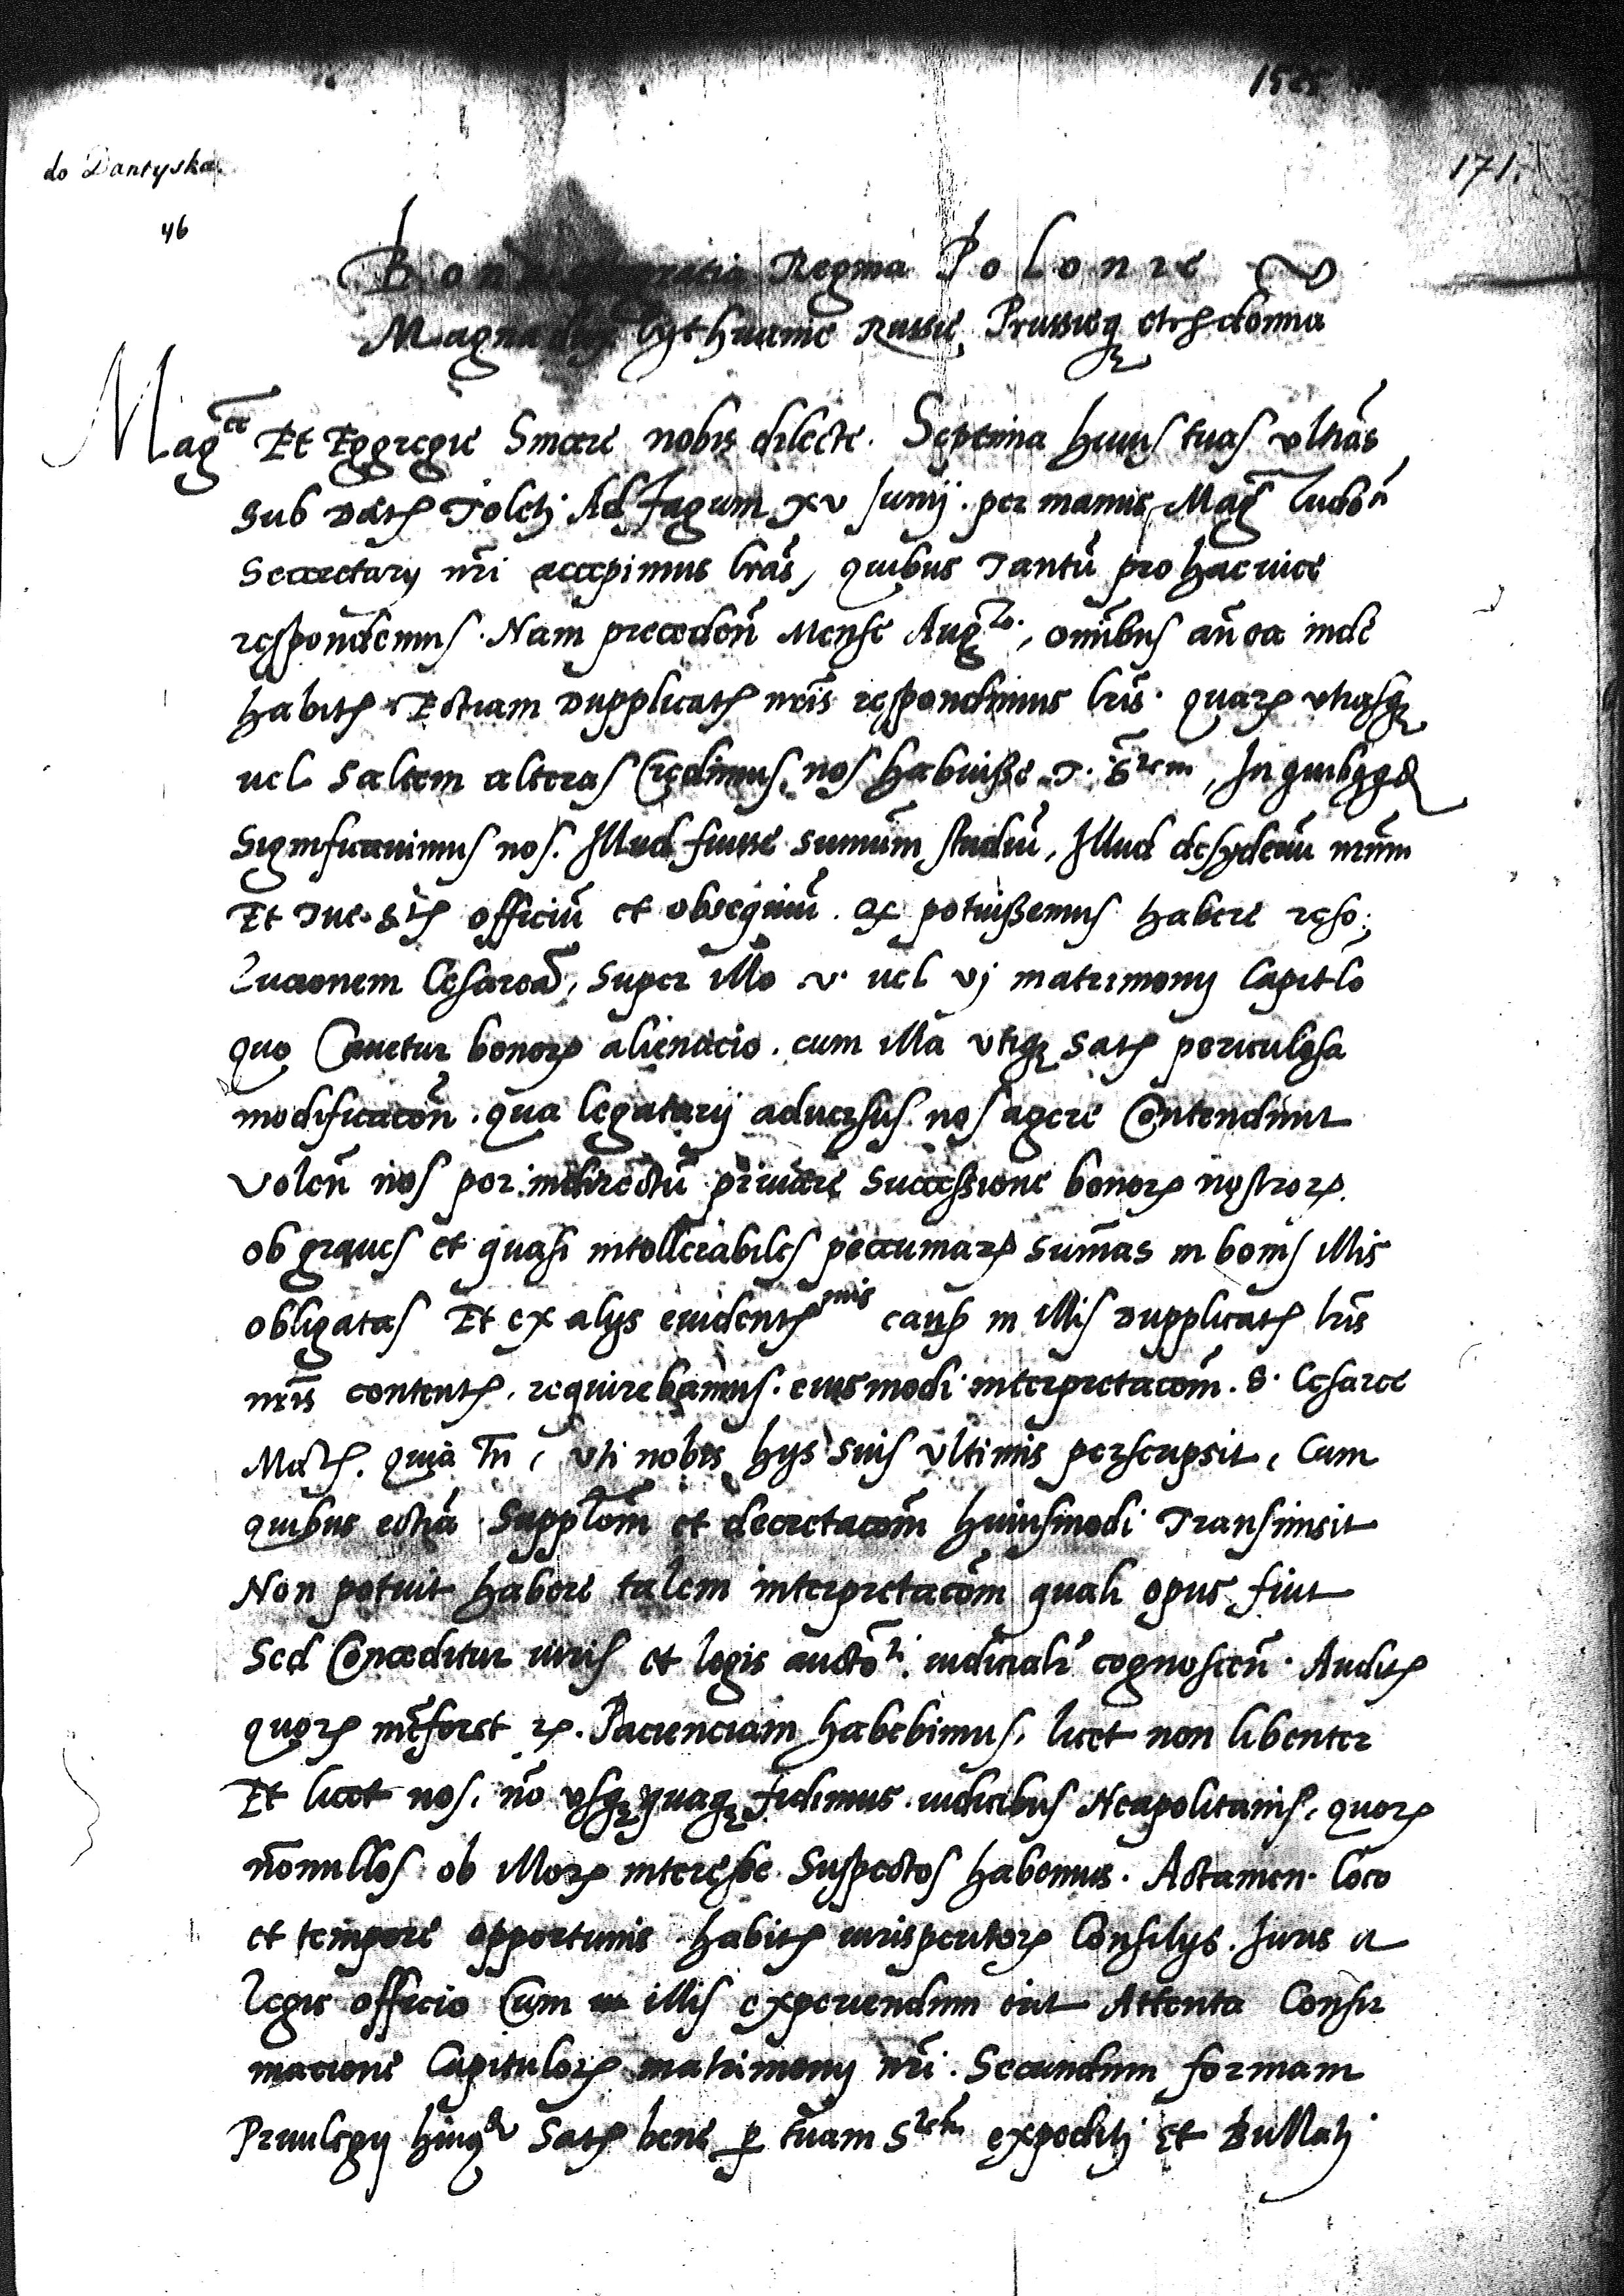 1525
do Dantyska
171.
46
Bona dei gratia Regina Polonie
Magna dux Lythuanie Russie Prussieq(ue) etc domina
Mag(ce) Et Eggregie Sincere nobis dilecte. Septima huius tuas ultias
Sub Datis Toleti Ad Tagum xv Junij. per manus Mag(ci) Ludoci
Secretarij nri accepimus lras, quibus Tantu pro hac vice
respondemus. Nam preceden Mense Aug(to), omibus antea inde
habitis Ectiam Dupplicatis nris respondimus lris. quaru(m) utrasq(ue)
vel saltem alteras Credimus nos habuisse T. S(tem), In quibq(ue)
Significavimus nos. Illud fuisse Summum studiu, Illud desyderiu nrum
Et Tue S(tis) officiu et obsequiu. si potuissemus habere reso:
lucionem Cesarea, Super illo v. vel vj matrimonij Capitlo
quo Cavetur bonoru(m) alienacio. cum illa utiq(ue) Satis periculosa
modificacon. qua legatarij adversus nos agere Contendunt
volen nos per indirectu privare Successione bonoru(m) nostroru(m).
ob graves et quasi intollerabiles pecuniaru(m) Sumas in bonis illis
obligatas Et ex alijs evidentis(mis) causis in illis Dupplicatis lris
nris contentis. requirebamus. eiusmodi interpretacom. S. Cesaree
Mtis. quia tn, uti nobis hijs suis ultimis perscripsit, Cum
quibus ectia Supplicom et decretacom huiusmodi Transmisit
Non potuit habere talem interpretacom quali opus fuit
Sed Conceditur iuris et legis aucto(ti). iudiciali cognoscen. Auditis
quoru(m) interest etc. Pacienciam habebimus, licet non libenter
Et licet nos, no usq(ue)quaq(ue) fidimus iudicibus Neapolitanis, quoru(m)
nonullos ob illoru(m) interesse Suspectos habemus. Actamen loco
et tempore opportunis habitis iurisperitoru(m) Consilijs. Iuris et
legis officio Cum illis experiendum erit Attenta Confir
macione Capituloru(m) matrimonij nri. Secundum formam
Privilegij huiusmodi Satis bene per tuam S(tem) expediti Et Bullati